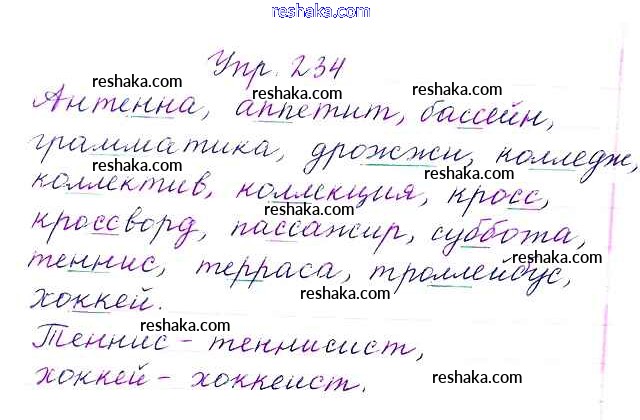 reshaka.com
Упр. 234
reshaka.com reshaka.com
Антенна, аппетит, бассейн,
reshaka.com reshaka.com
грамматика, дрожжи, колледж,
reshaka.com reshaka.com
коллектив, коллекция, кросс,
reshaka.com
кроссворд, пассажир, суббота,
reshaka.com reshaka.com
теннис, терраса, троллейбус,
reshaka.com
хоккей.
reshaka.com
Теннис - теннисист,
reshaka.com
хоккей - хоккеист.